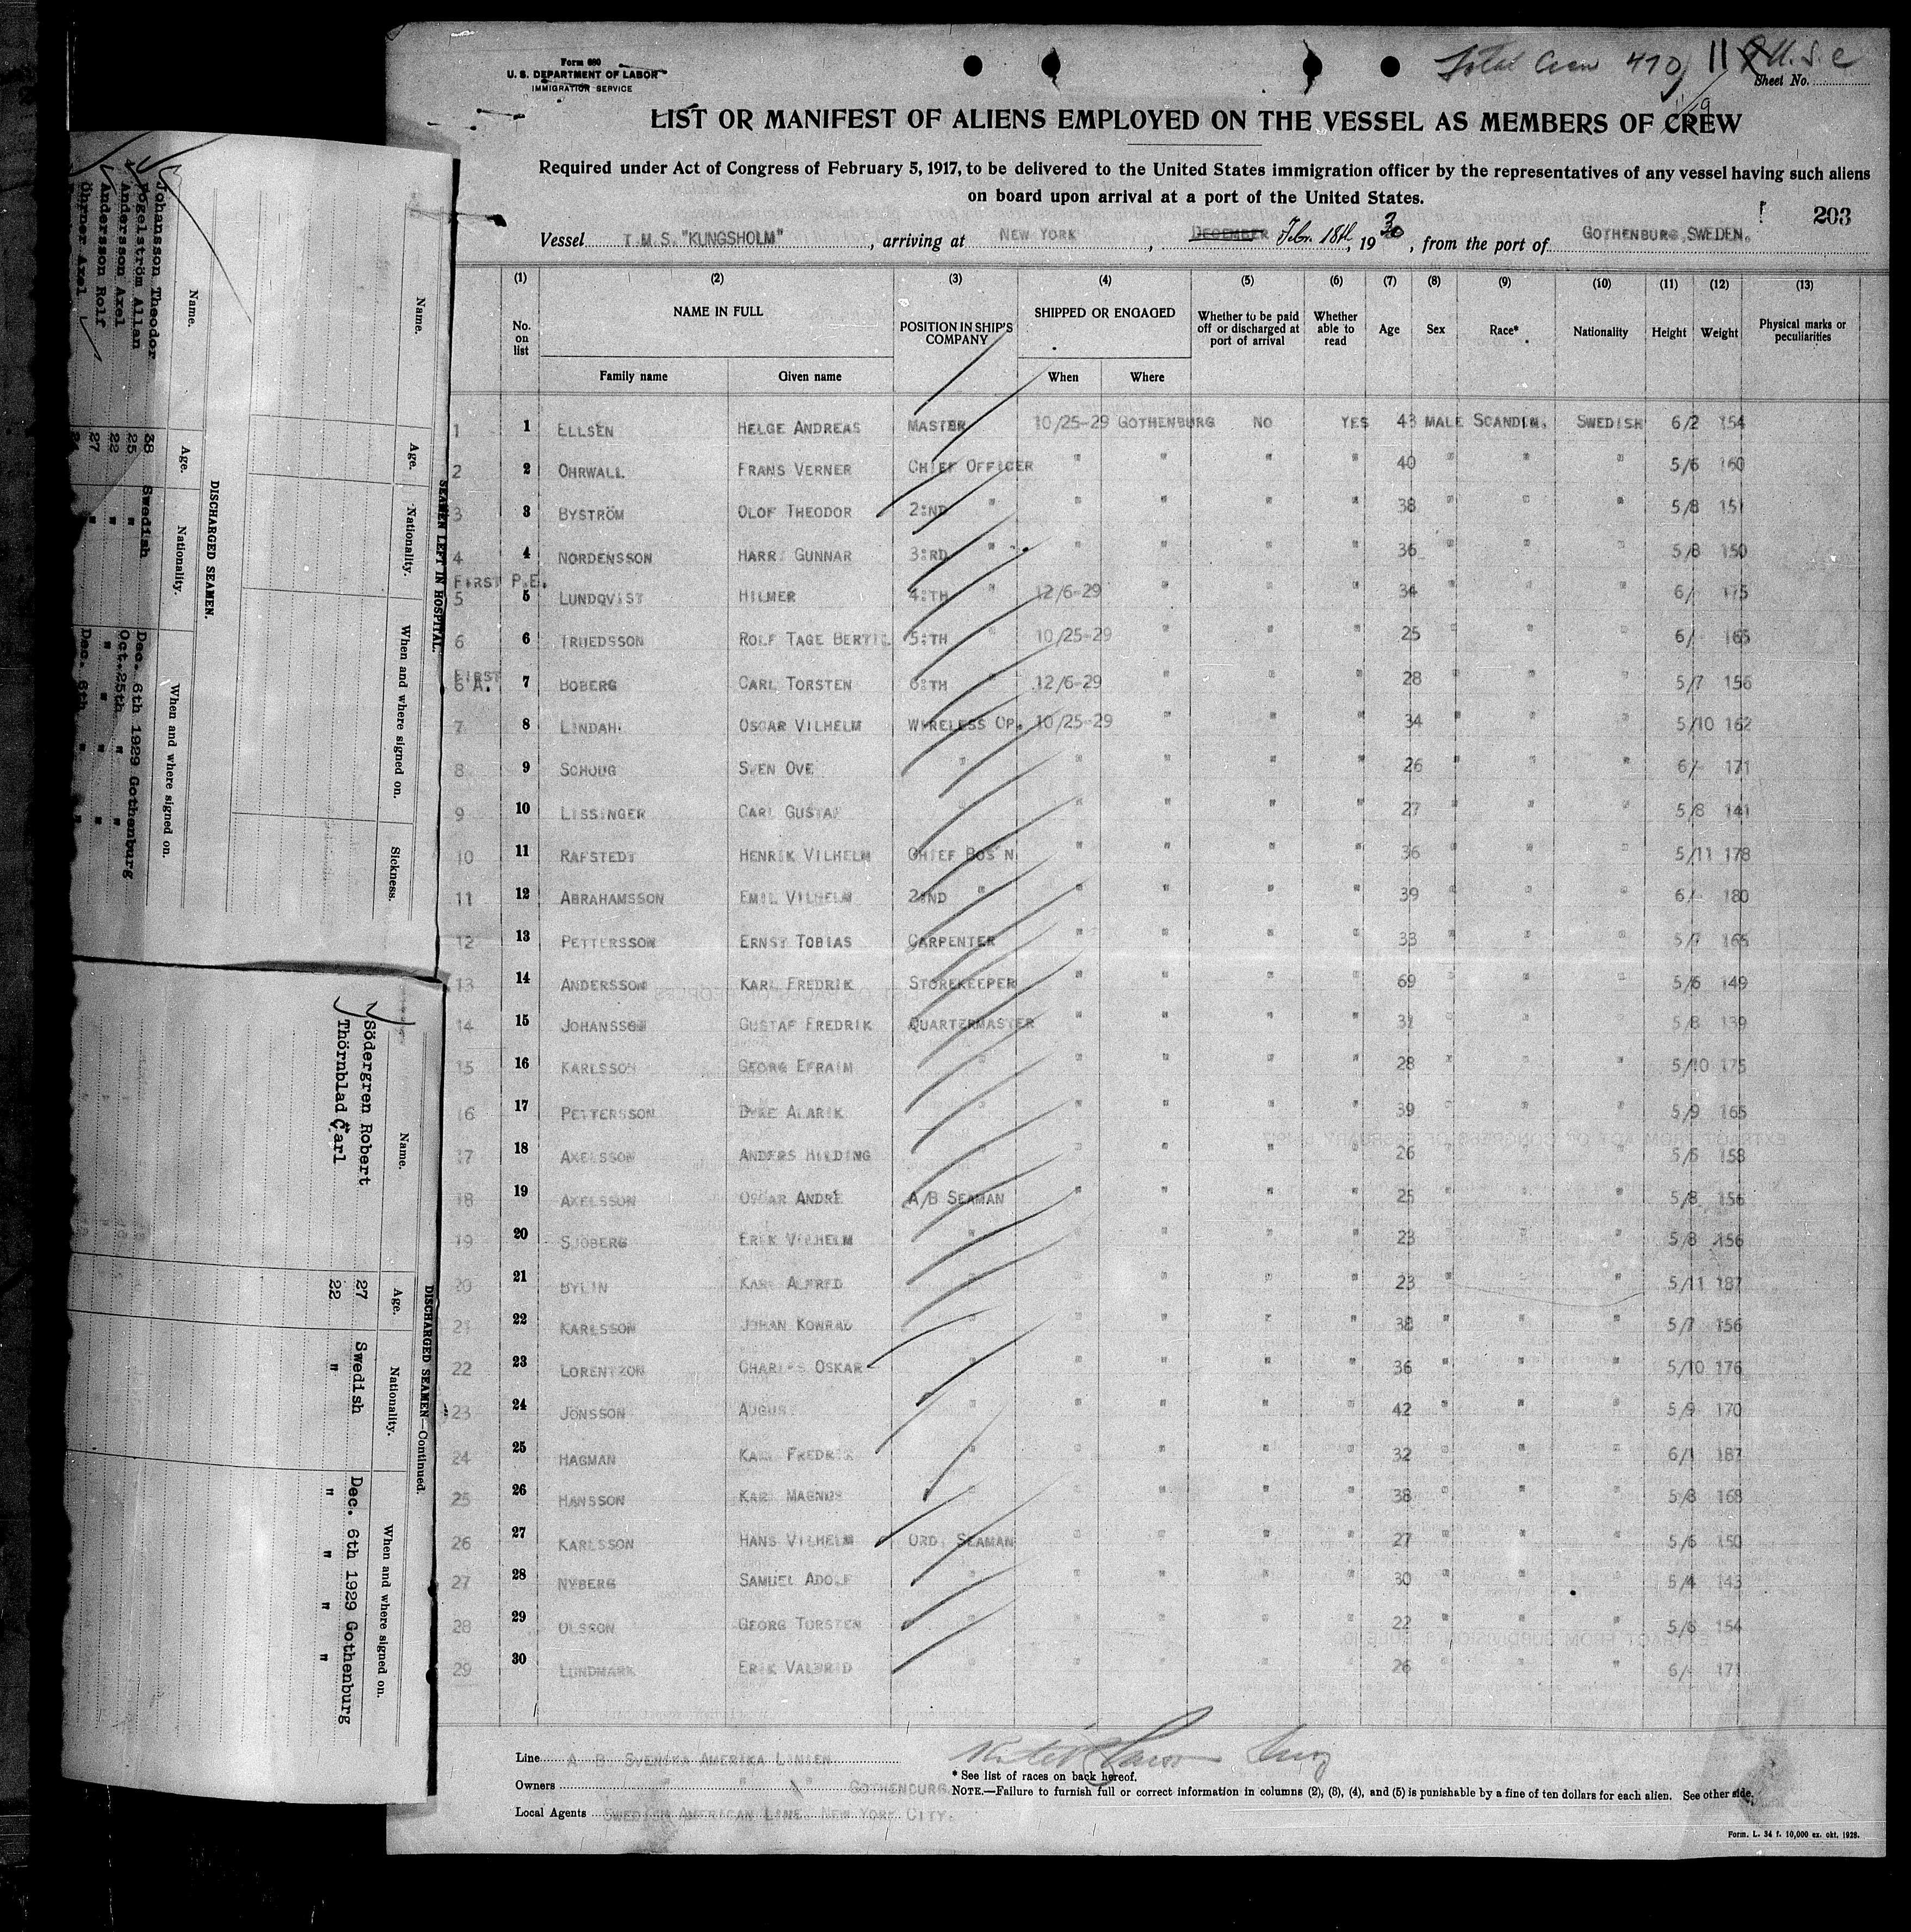 Form 680
U. S. DEPARTMENT OF LABOR
IMMIGRATION SERVICE
Total Crew 410
11 U.S.C
Sheet No.
LIST OR MANIFEST OF ALIENS EMPLOYED ON THE VESSEL AS MEMBERS OF CREW
Required under Act of Congress of February 5, 1917, to be delivered to the United States immigration officer by the representatives of any vessel having such aliens
on board upon arrival at a port of the United States.
203
Vessel T.M.S. "KUNGSHOLM", arriving at NEW YORK, DECEMBER Febr. 18th, 1930, from the port of GOTHENBURG, SWEDEN.
(1) (2) (3) (4) (5) (6) (7) (8) (9) (10) (11) (12) (13)
No. on list NAME IN FULL POSITION IN SHIP'S COMPANY SHIPPED OR ENGAGED Whether to be paid off or discharged at port of arrival Whether able to read Age Sex Race* Nationality Height Weight Physical marks or peculiarities
Family name Given name When Where
1 1 ELLSEN HELGE ANDREAS MASTER 10/25-29 GOTHENBURG NO YES 43 MALE SCANDIN. SWEDISH 6/2 154
2 2 OHRWALL FRANS VERNER CHIEF OFFICER " " " " 40 " " " 5/6 160
3 3 BYSTRÖM OLOF THEODOR 2:ND " " " " " 38 " " " 5/8 151
4 4 NORDENSSON HARRY GUNNAR 3:RD " " " " " 36 " " " 5/8 150
FIRST P.E.
5 5 LUNDQVIST HILMER 4:TH " 12/6-29 " " " 34 " " " 6/ 175
6 6 TRUEDSSON ROLF TAGE BERTIL 5:TH " 10/25-29 " " " 25 " " " 6/- 165
FIRST
6 A. 7 BOBERG CARL TORSTEN 6:TH " 12/6-29 " " " 28 " " " 5/7 156
7 8 LINDAHL OSCAR VILHELM WIRELESS OP. 10/25-29 " " " 34 " " " 5/10 162
8 9 SCHOUG SVEN OVE " " " " " 26 " " " 6/- 171
9 10 LISSINGER CARL GUSTAF " " " " 27 " " " 5/8 141
10 11 RAFSTEDT HENRIK VILHELM CHIEF BOS'N " " " " 36 " " " 5/11 178
11 12 ABRAHAMSSON EMIL VILHELM 2:ND " " " " " 39 " " " 6/- 180
12 13 PETTERSSON ERNST TOBIAS CARPENTER " " " " 33 " " " 5/7 165
13 14 ANDERSSON KARL FREDRIK STOREKEEPER " " " " 69 " " " 5/6 149
14 15 JOHANSSON GUSTAF FREDRIK QUARTERMASTER " " " " " " " 5/8 139
15 16 KARLSSON GEORG EFRAIM " " " " " 28 " " " 5/10 175
16 17 PETTERSSON ALARIK " " " " " 39 " " " 5/9 165
17 18 AXELSSON ANDERS HILDING " " " " 26 " " " 5/5 158
18 19 AXELSSON OSCAR ANDRÉ A/B SEAMAN " " " " 25 " " " 5/8 156
19 20 SJÖBERG ERIK VILHELM " " " " 23 " " " 5/8 156
20 21 BYLIN KARL ALFRED " " " " 23 " " " 5/11 187
21 22 KARLSSON JOHAN KONRAD " " " " 38 " " " 5/7 156
22 23 LORENTZON CHARLES OSKAR " " " " 36 " " " 5/10 176
23 24 JÖNSSON AUGUST " " " " " 42 " " " 5/9 170
24 25 HAGMAN KARL FREDRIK " " " " " 32 " " " 6/1 187
25 26 HANSSON KARL MAGNUS " " " " " 38 " " " 5/8 168
26 27 KARLSSON HANS VILHELM ORD. SEAMAN " " " " 27 " " " 5/6 150
27 28 NYBERG SAMUEL ADOLF " " " " " 30 " " " 5/4 143
28 29 OLSSON GEORG TORSTEN " " " " " 22 " " " 5/6 154
29 30 LUNDMARK ERIK VALFRID " " " " " 26 " " " 6/- 171
Line A. B. SVENSKA AMERIKA LINIEN
Owners " " " GOTHENBURG.
Local Agents SWEDISH AMERICAN LINE NEW YORK CITY.
* See list of races on back hereof.
NOTE.—Failure to furnish full or correct information in columns (2), (3), (4), and (5) is punishable by a fine of ten dollars for each alien. See other side.
Form. L. 34 f. 10,000 ex. okt. 1928.
SEAMEN LEFT IN HOSPITAL.
Name. Age. Nationality. When and where signed on. Sickness.
DISCHARGED SEAMEN.
Name. Age. Nationality. When and where signed on.
Johansson Theodor 38 Swedish Dec. 6th 1929 Gothenburg
Fogelström Allan 25 " Oct. 25th " "
Andersson Axel 22 " " " "
Andersson Rolf 27 " Dec. 6th " "
Öhrner Axel
DISCHARGED SEAMEN—Continued.
Name. Age. Nationality. When and where signed on.
Södergren Robert 27 Swedish Dec. 6th 1929 Gothenburg
Thörnblad Carl 22 " " " " "